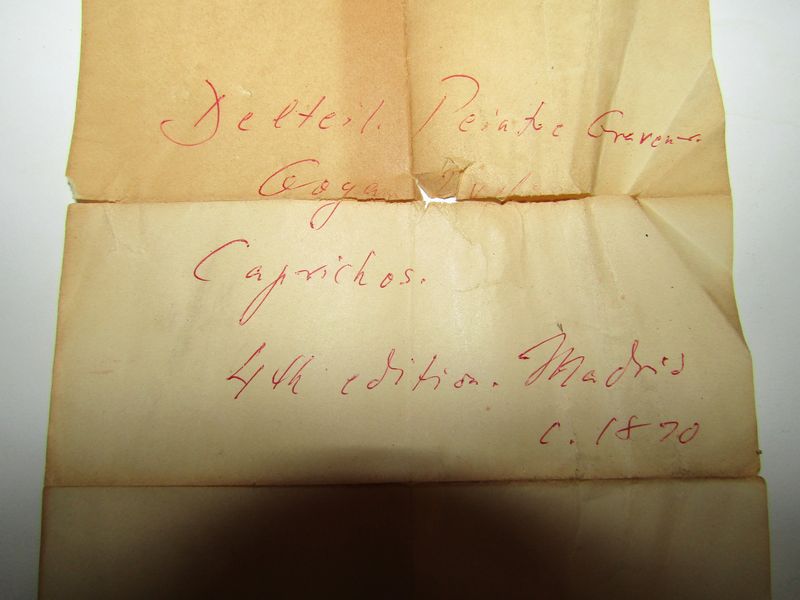 Delteil. Peintre Graveur.
Goya
Caprichos.
4th edition. Madrid
c. 1870